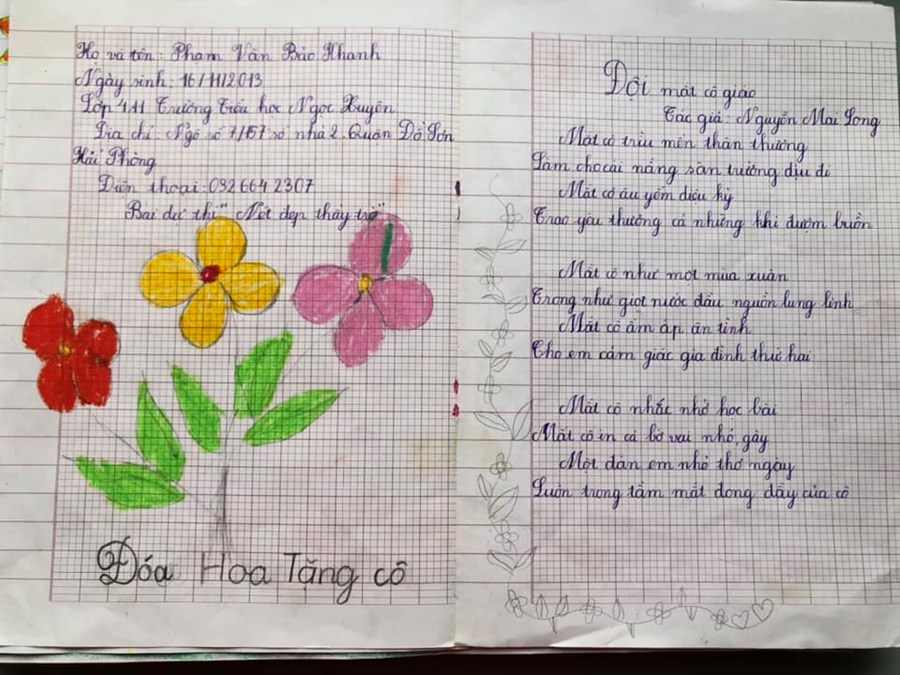 Họ và tên: Phạm Văn Bảo Khanh
Ngày sinh: 16/11/2013
Lớp 4A1 Trường Tiểu học Ngọc Xuyên
Địa chỉ: Ngõ số 7/157 số nhà 2 Quận Đồ Sơn
Hải Phòng
Điện thoại: 032 664 2307
Bài dự thi "Nét đẹp thầy trò"
Đóa Hoa Tặng cô
Đôi mắt cô giáo
Tác giả: Nguyễn Mai Long
Mắt cô trìu mến thân thương
Làm cho cái nắng sân trường dịu đi
Mắt cô âu yếm diệu kỳ
Trao yêu thương cả những khi đượm buồn
Mắt cô như một mùa xuân
Trong như giọt nước đầu nguồn lung linh
Mắt cô ấm áp ân tình
Cho em cảm giác gia đình thứ hai
Mắt cô nhắc nhở học bài
Mắt cô in cả bờ vai nhỏ, gầy
Một đàn em nhỏ thơ ngây
Luôn trong tầm mắt đong đầy của cô